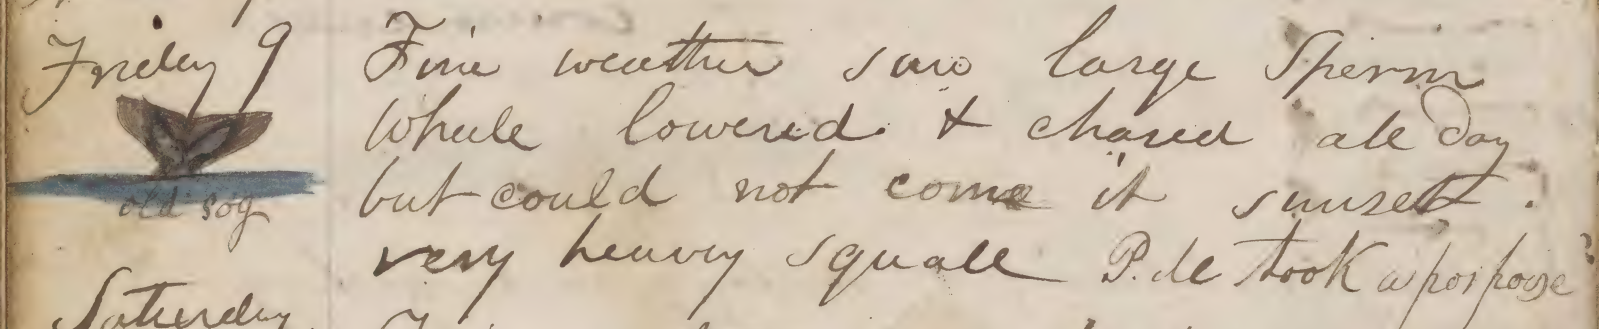 Friday 9 Fine weather saw large Sperm
Whale lowered & chased all day
but could not come it sunset.
old sog
very heavy squall P. M took a porpoise
Saturday